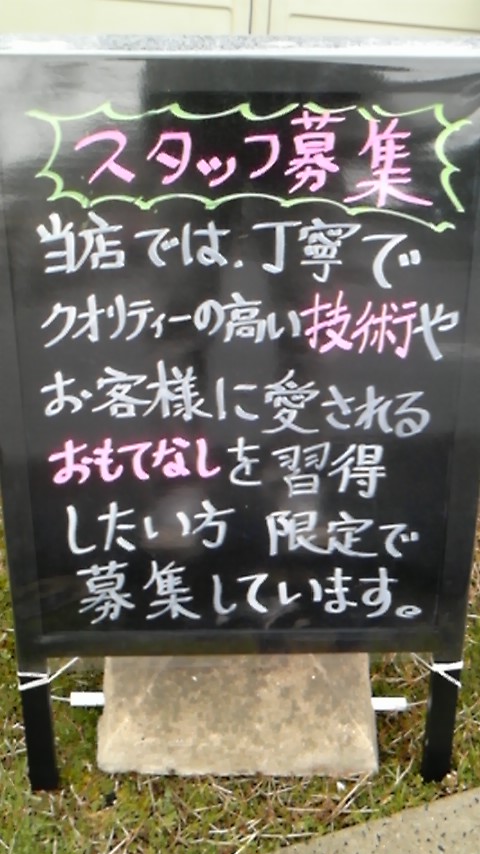 スタッフ募集
当店では、丁寧で
クオリティーの高い技術や
お客様に愛される
おもてなしを習得
したい方 限定で
募集しています。